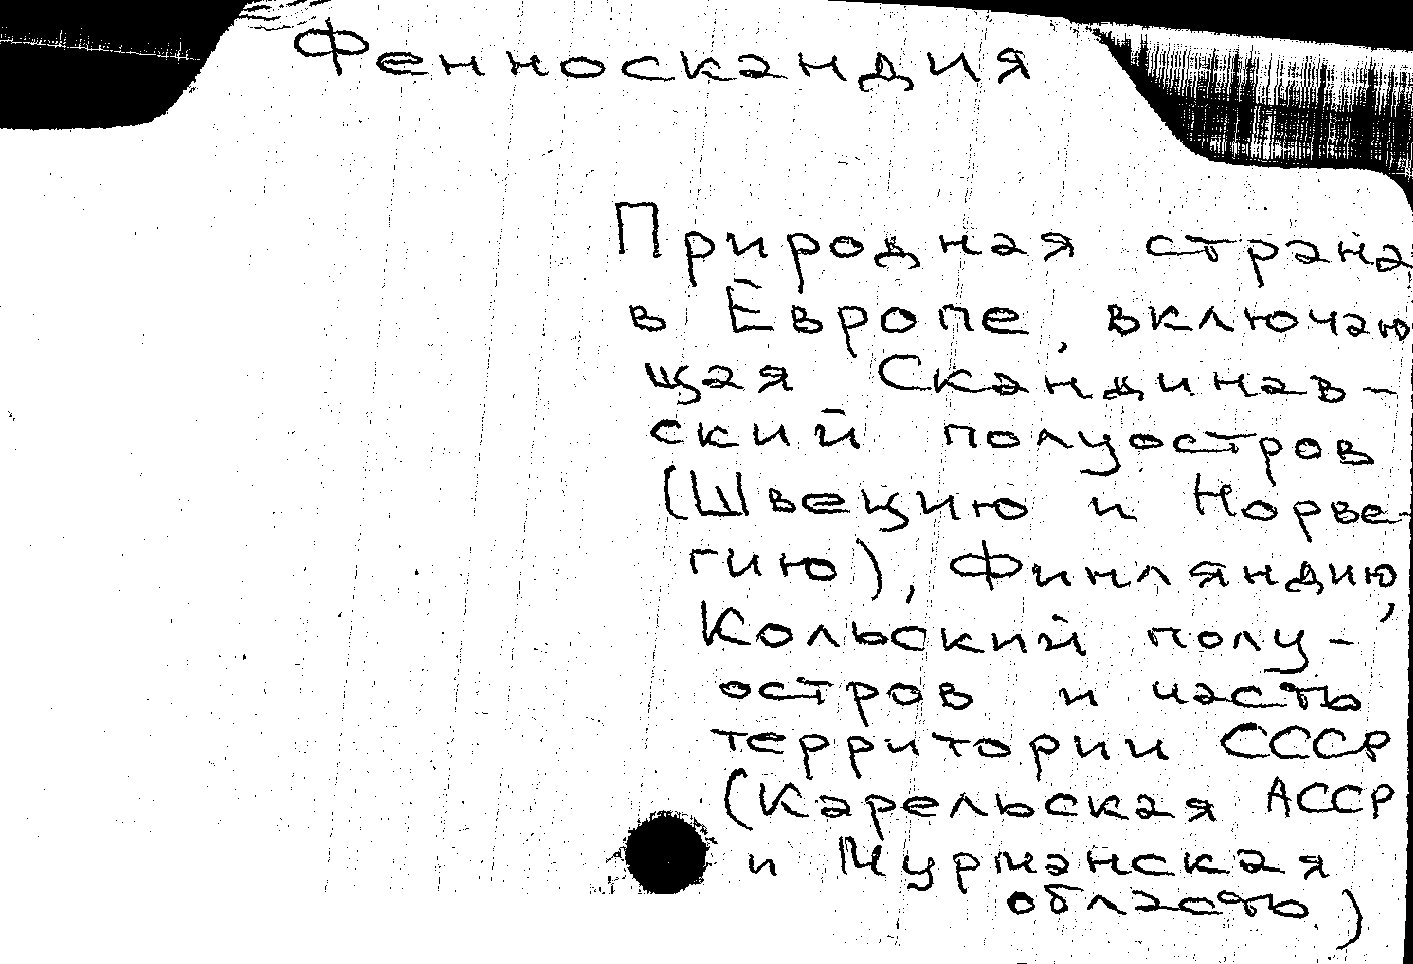 Фенноскандия
Природная страна
в Европе, включаю
щая Скандинав-
ский полуостров
(Швецию и Норве-
гию), Финляндию,
Кольский полу-
остров и часть
территории СССР
(Карельская АССР
и Мурманская
область)